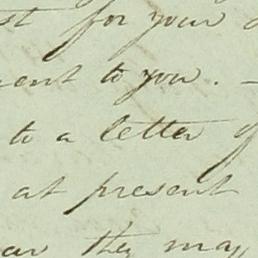 for your
to you. —
to a letter of
at present
they may